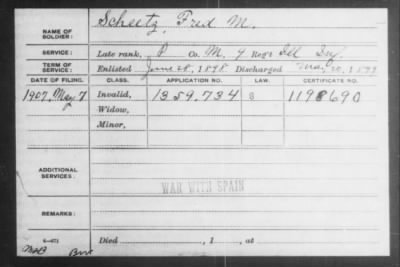 NAME OF SOLDIER: Scheetz, Fred M.
SERVICE: Late rank, P Co. M, 7 Reg't Ill Inf.
TERM OF SERVICE: Enlisted June 28, 1898 Discharged 20, 1899
DATE OF FILING. CLASS. APPLICATION NO. LAW. CERTIFICATE NO.
1907, May 7 Invalid, 1359.734 G 1198690
Widow,
Minor,
ADDITIONAL SERVICES:
WAR WITH SPAIN
REMARKS:
Died , 1 , at